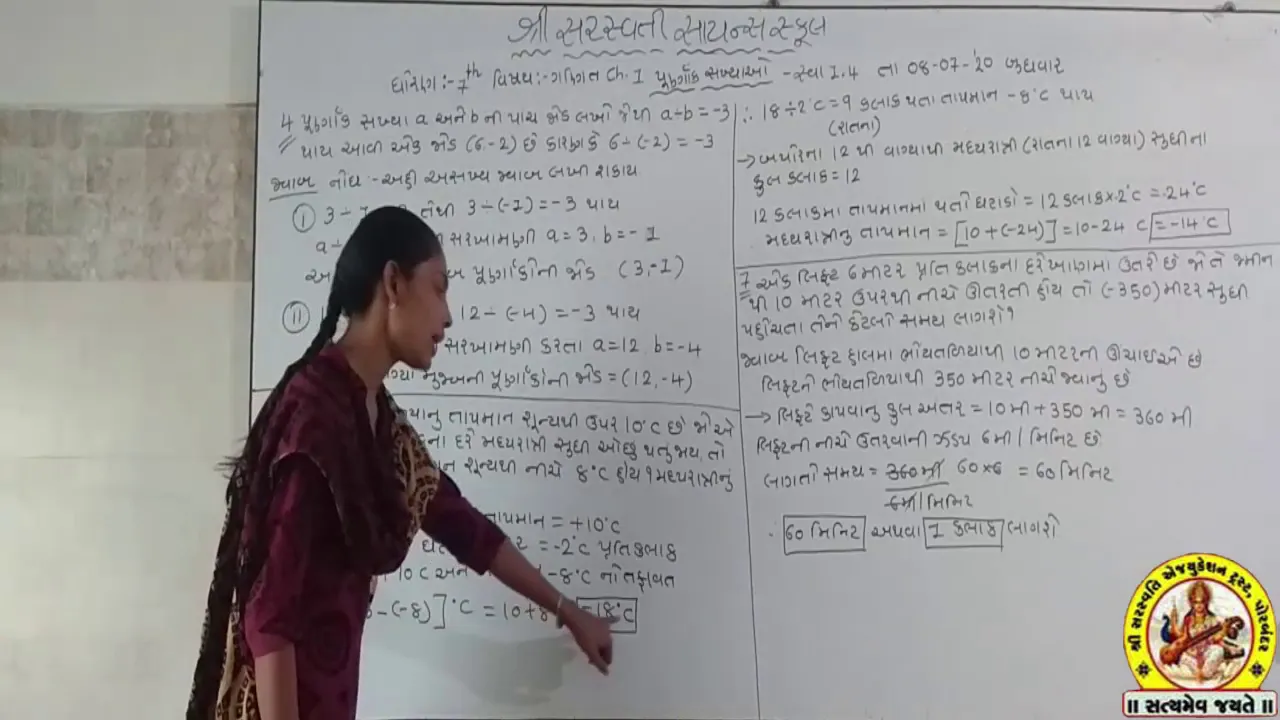 શ્રી સરસ્વતી સાયન્સ સ્કૂલ
ધોરણ:-7th વિષય:-ગણિત Ch.1 પૂર્ણાંક સંખ્યાઓ -સ્વા 1.4 તા 08-07-'20 બુધવાર
4 પૂર્ણાંક સંખ્યા a અને b ની પાંચ જોડ લખો જેથી a÷b = -3
થાય આવી એક જોડ (6,-2) છે કારણકે 6÷(-2) = -3
જવાબ નોંધ:-અહીં અસંખ્ય જવાબ લખી શકાય
① 3÷ તેથી 3÷(-1)=-3 થાય
a÷ સરખામણી a=3, b=-1
પૂર્ણાંકોની જોડ (3,-1)
⑪ 12÷(-4)=-3 થાય
સરખામણી કરતા a=12, b=-4
મુજબની પૂર્ણાંકોની જોડ=(12,-4)
તાપમાન શૂન્યથી ઉપર 10°C છે જો એ
ના દરે મધ્યરાત્રી સુધી ઓછુ થતુ જાય, તો
શૂન્યથી નીચે 8°C હોય? મધ્યરાત્રીનું
તાપમાન = +10°C
= -2°C પ્રતિ કલાક
10C અને -8°C નો તફાવત
-(-8)]°C = 10+8 =18°C
∴ 18÷2°C=9 કલાક થતા તાપમાન -8°C થાય
(રાતના)
→ બપોરના 12 થી વાગ્યાથી મધ્યરાત્રી (રાતના 12 વાગ્યા) સુધીના
કુલ કલાક=12
12 કલાકમા તાપમાનમાં થતો ઘટાડો = 12 કલાક×-2°C =-24°C
મધ્યરાત્રીનુ તાપમાન = [10+(-24)]=10-24 C =-14°C
7 એક લિફ્ટ 6મીટર પ્રતિ કલાકના દરે ખાણમા ઉતરી છે જો તે જમીન
થી 10 મીટર ઉપરથી નીચે ઊતરતી હોય તો (-350)મીટર સુધી
પહોંચતા તેને કેટલો સમય લાગશે?
જવાબ લિફ્ટ હાલમા ભોંયતળિયાથી 10 મીટરની ઊંચાઈએ છે
લિફ્ટની ભોંયતળિયાથી 350 મીટર નીચે જવાનુ છે
→ લિફ્ટે કાપવાનુ કુલ અંતર = 10મી + 350 મી = 360 મી
લિફ્ટની નીચે ઉતરવાની ઝડપ 6મી/મિનિટ છે
લાગતો સમય = 360મી 60×6 = 60 મિનિટ
6મી/મિનિટ
∴ 60 મિનિટ અથવા 1 કલાક લાગશે
શ્રી સરસ્વતિ એજ્યુકેશન ટ્રસ્ટ, પોરબંદર
॥ સત્યમેવ જયતે ॥